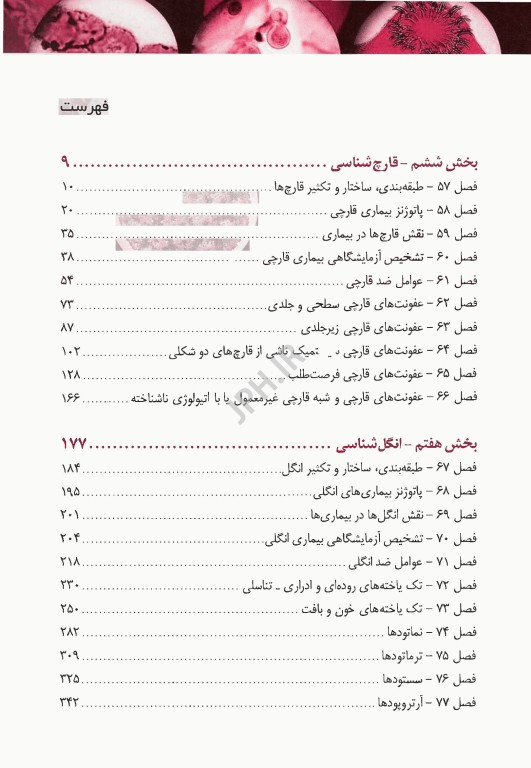 فهرست
بخش ششم – قارچ‌شناسی ........................................ ۹
فصل ۵۷ – طبقه‌بندی، ساختار و تکثیر قارچ‌ها ........................................ ۱۰
فصل ۵۸ – پاتوژنز بیماری قارچی ........................................ ۲۰
فصل ۵۹ – نقش قارچ‌ها در بیماری ........................................ ۳۵
فصل ۶۰ – تشخیص آزمایشگاهی بیماری قارچی ........................................ ۳۸
فصل ۶۱ – عوامل ضد قارچی ........................................ ۵۴
فصل ۶۲ – عفونت‌های قارچی سطحی و جلدی ........................................ ۷۳
فصل ۶۳ – عفونت‌های قارچی زیرجلدی ........................................ ۸۷
فصل ۶۴ – عفونت‌های قارچی ناشی از قارچ‌های دو شکلی ........................................ ۱۰۲
فصل ۶۵ – عفونت‌های قارچی فرصت‌طلب ........................................ ۱۲۸
فصل ۶۶ – عفونت‌های قارچی و شبه قارچی غیرمعمول یا با اتیولوژی ناشناخته ............ ۱۶۶
بخش هفتم – انگل‌شناسی ........................................ ۱۷۷
فصل ۶۷ – طبقه‌بندی، ساختار و تکثیر انگل ........................................ ۱۸۴
فصل ۶۸ – پاتوژنز بیماری‌های انگلی ........................................ ۱۹۵
فصل ۶۹ – نقش انگل‌ها در بیماری‌ها ........................................ ۲۰۱
فصل ۷۰ – تشخیص آزمایشگاهی بیماری انگلی ........................................ ۲۰۴
فصل ۷۱ – عوامل ضد انگلی ........................................ ۲۱۸
فصل ۷۲ – تک یاخته‌های روده‌ای و ادراری ـ تناسلی ........................................ ۲۳۰
فصل ۷۳ – تک یاخته‌های خون و بافت ........................................ ۲۵۰
فصل ۷۴ – نماتودها ........................................ ۲۸۲
فصل ۷۵ – ترماتودها ........................................ ۳۰۹
فصل ۷۶ – سستودها ........................................ ۳۲۵
فصل ۷۷ – آرتروپودها ........................................ ۳۴۲
JPH.IR